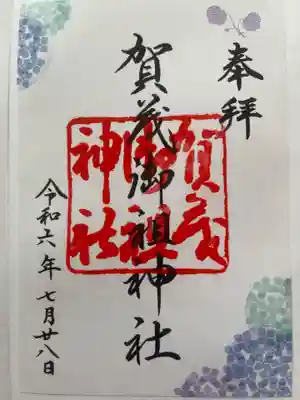 奉拝
賀茂御祖神社
賀茂
御祖
神社
令和六年七月廿八日